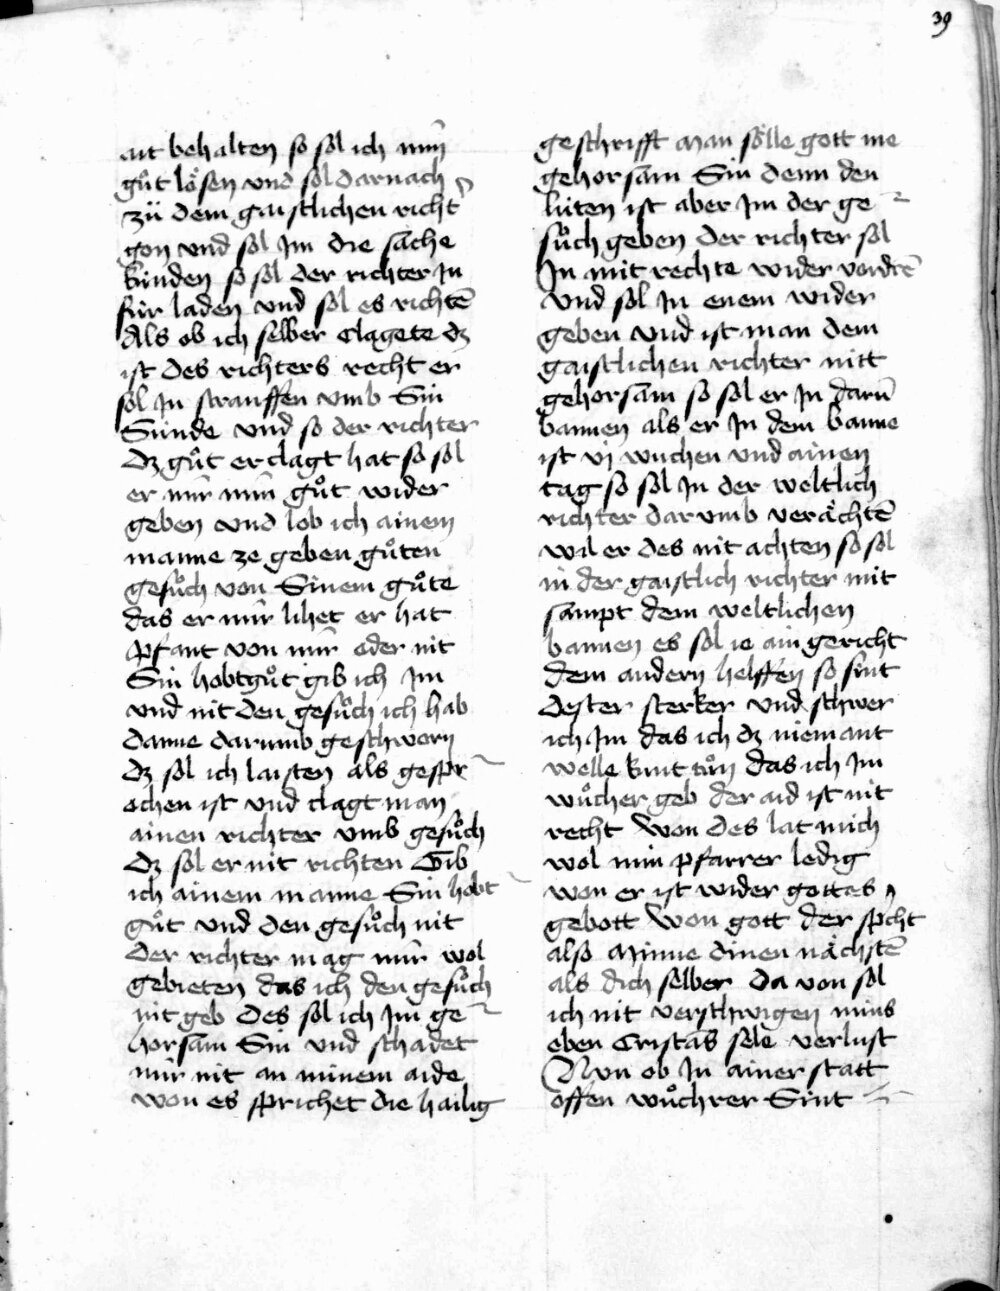 39
ait behalten so sol ich min̄
guͦt loͤsen vnd sol darnach
zü dem gaistlichen richt᷑
gon vnd sol Jm die sache
künden so sol der richter Jn
für laden vnd sol es richtē
Als ob ich selber clagete dz
ist des richters recht er
sol Jn strauffen vmb Sin
Sünde vnd so der richter
dz guͦt erclagt hat so sol
er mir min guͦt wider
geben vnd lob ich ainem
manne ze geben guͦten
gesuͦch von Sinem guͦte
das er mir lihet er hat
pfant von mir oder nit
Sin hobtguͦt gib ich Jm
vnd nit den gesuͦch ich hab
danne darumb geschworn
dz sol ich laisten als gespr
ochen ist vnd clagt man
ainen richter vmb gesuͦch
dz sol er nit richten Gib
ich ainem manne Sin hobt
guͦt vnd den gesuͦch nit
der richter mag mir wol
gebieten das ich den gesuͦch
nit geb des sol ich Jm ge
horsam Sin vnd schadet
mir nit an minem aide
won es sprichet die hailig
geschrifft man soͤlle gott me
gehorsam Sin denn den
lüten ist aber Jm der ge
suͦch geben der richter sol
Jn mit rechte wider vordrē
vnd sol Jn enem wider
geben vnd ist man dem
gaistlichen richter nitt
gehorsam so sol er Jn darū
bannen als er Jn dem banne
ist vj wuchen vnd ainen
tag so sol Jn der weltlich
richter darumb veraͤchtē
wil er des nit achten so sol
in der gaistlich richter mit
sampt dem weltlichen
bannen es sol ie ain gericht
dem andern helffen so sint
dester sterker vnd schwer
ich Jm das ich dz niemant
welle kunt tuͦn das ich Jm
wuͦcher geb der aid ist nit
recht Won des lat mich
wol min pfarrer ledig
won er ist wider gottes
gebott Won gott der spͥcht
also Minne dinen naͤchstē
als dich selber Da von sol
ich nit verschwigen mins
eben Cristas sele verlust
Nvn ob Jn ainer statt
offen wuͦchrer Sint